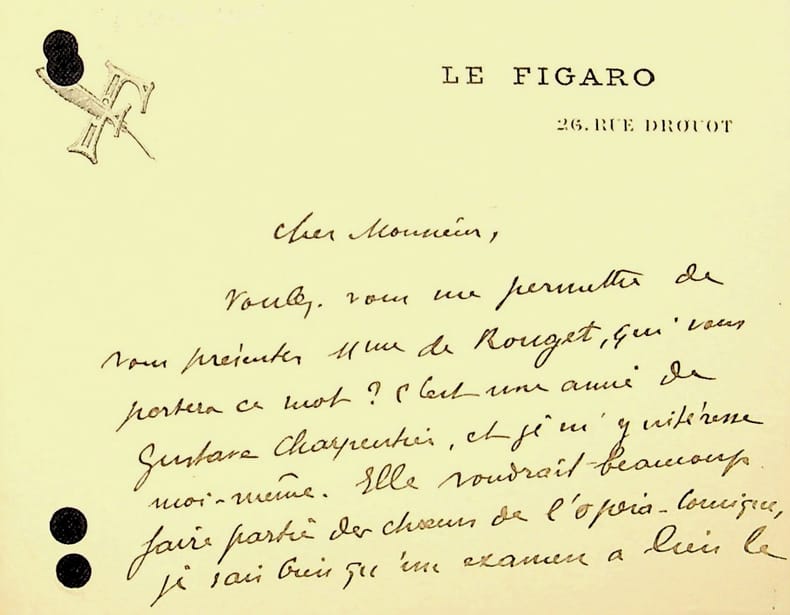 LE FIGARO
26. RUE DROUOT
Cher Monsieur,
Voulez-vous me permettre de
vous présenter Mme de Rouget, qui vous
portera ce mot ? C'est une amie de
Gustave Charpentier, et je m'y intéresse
moi-même. Elle voudrait beaucoup
faire partie des chœurs de l'Opéra-Comique,
je sais bien qu'un examen a lieu le